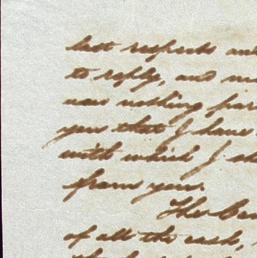 last respects and
to reply, and
now nothing
you that I have
with which I
from you.
The
of all the cash,